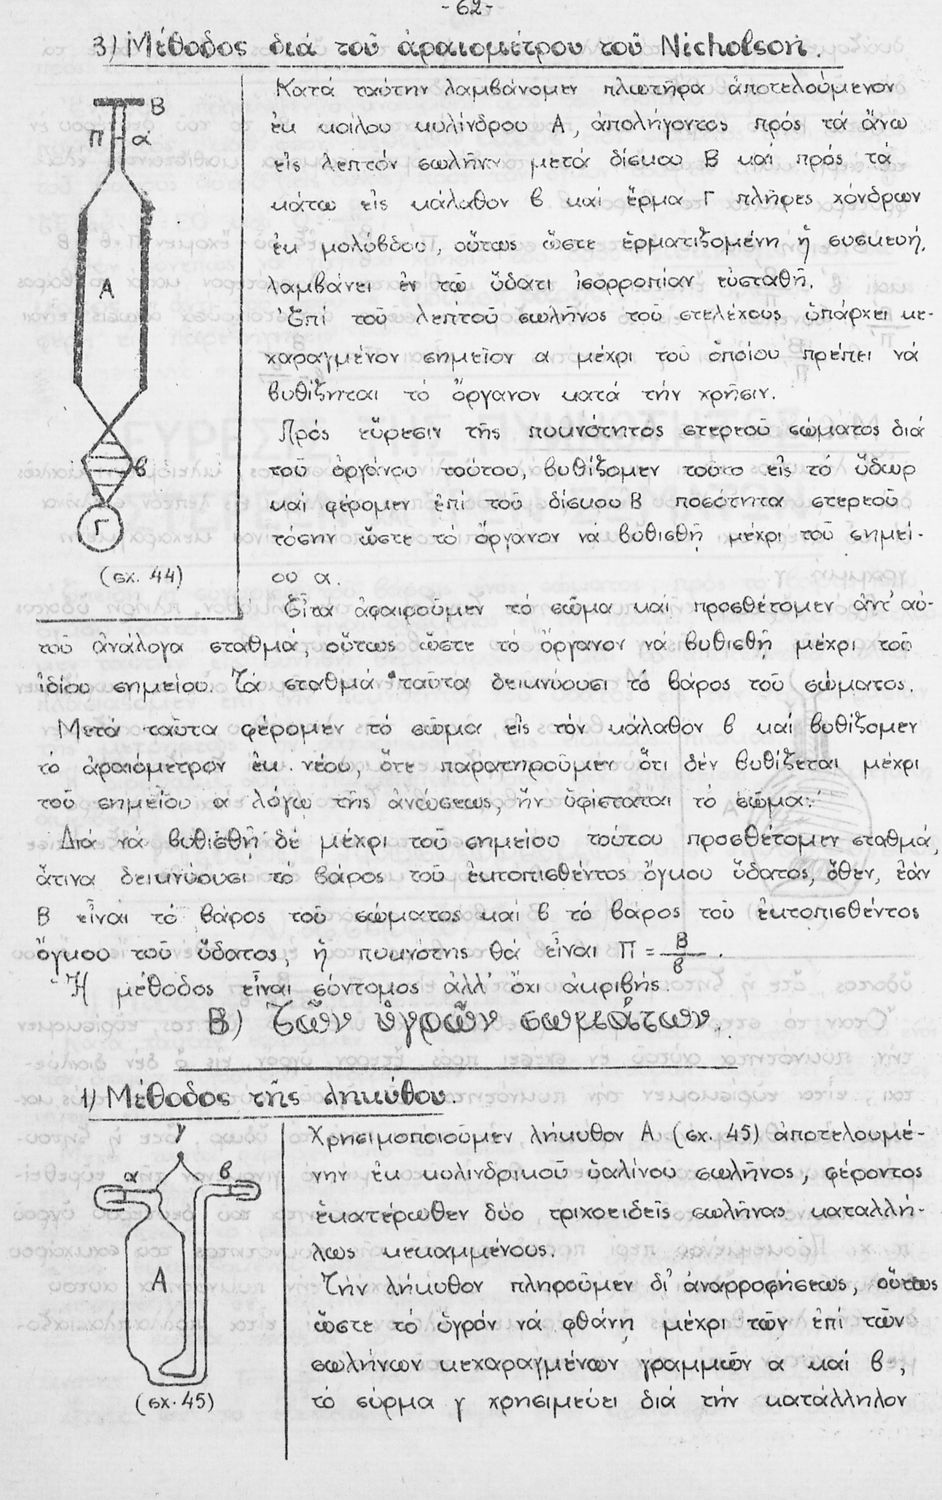 -62-
3) Μέθοδος διά τοῦ ἀραιομέτρου τοῦ Nicholson.
Κατά ταύτην λαμβάνομεν πλωτῆρα ἀποτελούμενον
ἐκ κοίλου κυλίνδρου Α, ἀπολήγοντος πρός τά ἄνω
εἰς λεπτόν σωλῆνα μετά δίσκου Β καί πρός τά
κάτω εἰς κάλαθον β καί ἕρμα Γ πλῆρες χόνδρων
ἐκ μολύβδου, οὕτως ὥστε ἑρματιζομένη ἡ συσκευή,
λαμβάνει ἐν τῷ ὕδατι ἰσορροπίαν εὐσταθῆ.
Ἐπί τοῦ λεπτοῦ σωλῆνος τοῦ στελέχους ὑπάρχει κε-
χαραγμένον σημεῖον α μέχρι τοῦ ὁποίου πρέπει νά
βυθίζηται τό ὄργανον κατά τήν χρῆσιν.
Πρός εὕρεσιν τῆς πυκνότητος στερεοῦ σώματος διά
τοῦ ὀργάνου τούτου, βυθίζομεν τοῦτο εἰς τό ὕδωρ
καί φέρομεν ἐπί τοῦ δίσκου Β ποσότητα στερεοῦ
τόσην ὥστε τό ὄργανον νά βυθισθῇ μέχρι τοῦ σημεί-
ου α.
Β
Π α
Α
β
Γ
(σχ. 44)
Εἶτα ἀφαιροῦμεν τό σῶμα καί προσθέτομεν ἀντ' αὐ-
τοῦ ἀνάλογα σταθμά, οὕτως ὥστε τό ὄργανον νά βυθισθῇ μέχρι τοῦ
ἰδίου σημείου. Τά σταθμά ταῦτα δεικνύουσι τό βάρος τοῦ σώματος.
Μετά ταῦτα φέρομεν τό σῶμα εἰς τόν κάλαθον β καί βυθίζομεν
τό ἀραιόμετρον ἐκ νέου, ὅτε παρατηροῦμεν ὅτι δέν βυθίζεται μέχρι
τοῦ σημείου α λόγῳ τῆς ἀνώσεως, ἥν ὑφίσταται τό σῶμα.
Διά νά βυθισθῇ δέ μέχρι τοῦ σημείου τούτου προσθέτομεν σταθμά,
ἅτινα δεικνύουσι τό βάρος τοῦ ἐκτοπισθέντος ὄγκου ὕδατος, ὅθεν, ἐάν
Β εἶναι τό βάρος τοῦ σώματος καί β τό βάρος τοῦ ἐκτοπισθέντος
ὄγκου τοῦ ὕδατος, ἡ πυκνότης θά εἶναι Π = Β/β.
Ἡ μέθοδος εἶναι σύντομος ἀλλ' ὄχι ἀκριβής.
Β) Τῶν ὑγρῶν σωμάτων.
1) Μέθοδος τῆς ληκύθου.
γ
α β
Α
(σχ. 45)
Χρησιμοποιοῦμεν λήκυθον Α (σχ. 45) ἀποτελουμέ-
νην ἐκ κυλινδρικοῦ ὑαλίνου σωλῆνος, φέροντος
ἑκατέρωθεν δύο τριχοειδεῖς σωλῆνας καταλλή-
λως κεκαμμένους.
Τήν λήκυθον πληροῦμεν δι' ἀναρροφήσεως, οὕτως
ὥστε τό ὑγρόν νά φθάνῃ μέχρι τῶν ἐπί τῶν
σωλήνων κεχαραγμένων γραμμῶν α καί β,
τό σύρμα γ χρησιμεύει διά τήν κατάλληλον